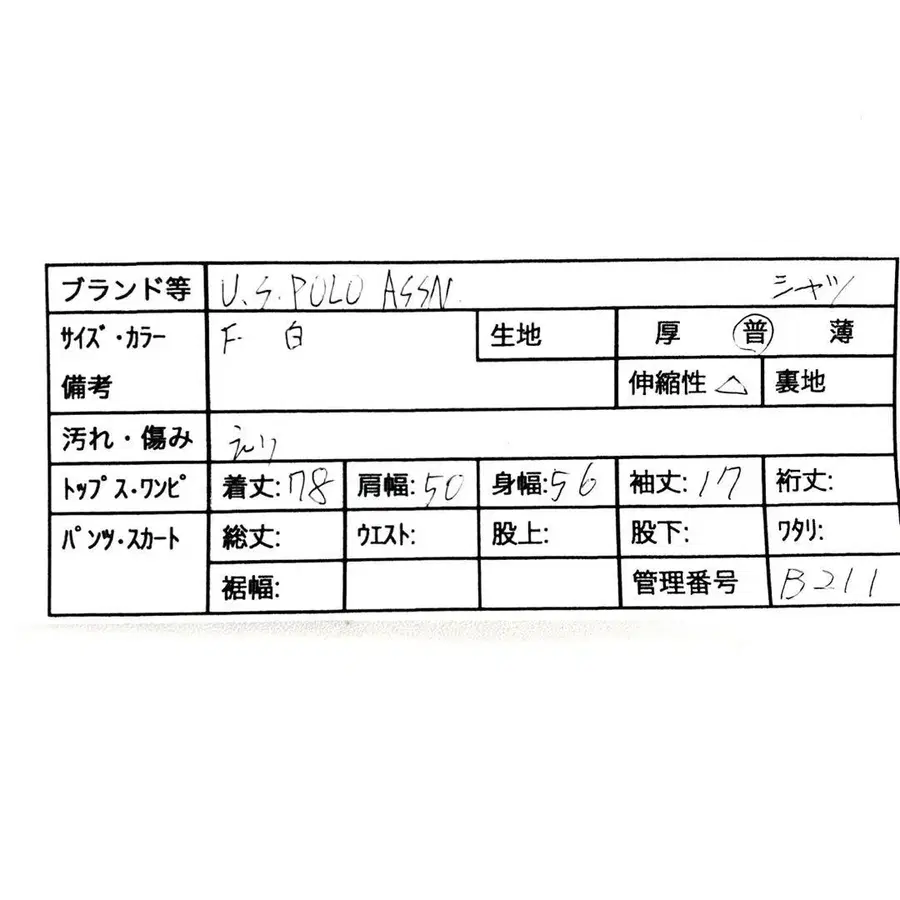 ブランド等 U.S.POLO ASSN. シャツ
サイズ・カラー F 白 生地 厚 普 薄
備考 伸縮性 △ 裏地
汚れ・傷み えり
トップス・ワンピ 着丈:78 肩幅:50 身幅:56 袖丈:17 裄丈:
パンツ・スカート 総丈: ウエスト: 股上: 股下: ワタリ:
裾幅: 管理番号 B211